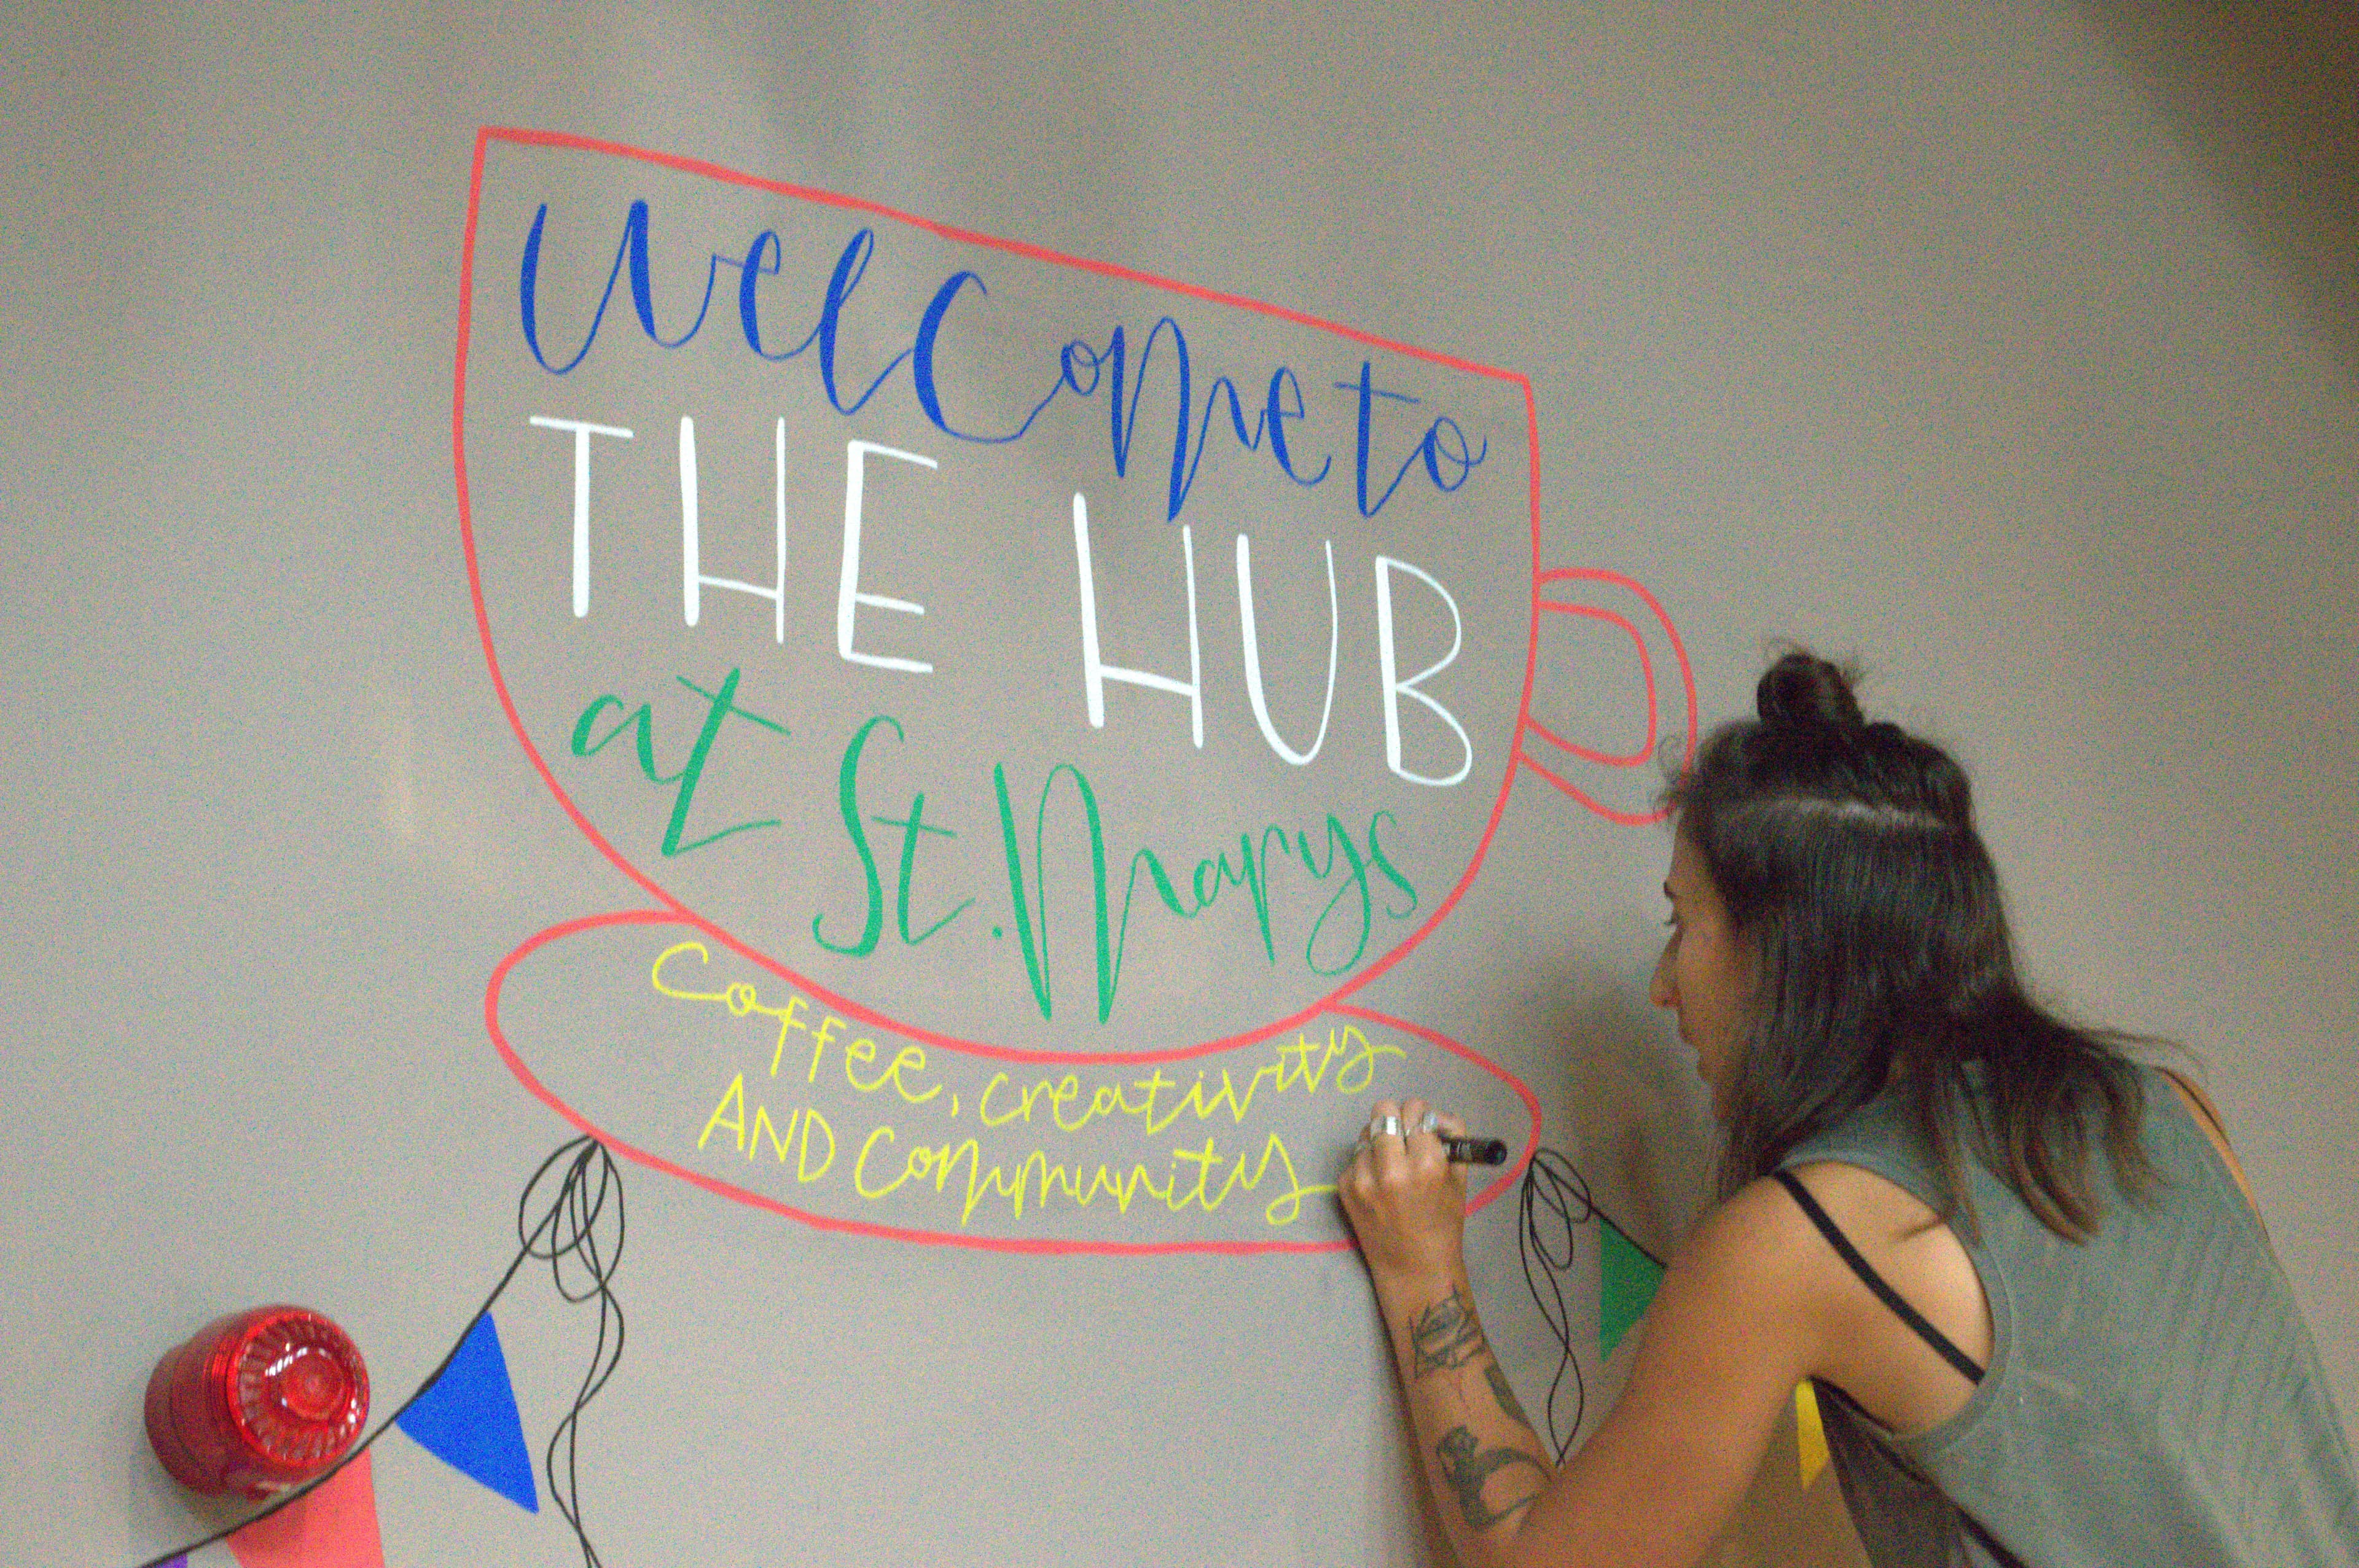 Welcome to
THE HUB
at St. Marys
Coffee, creativity
AND Community